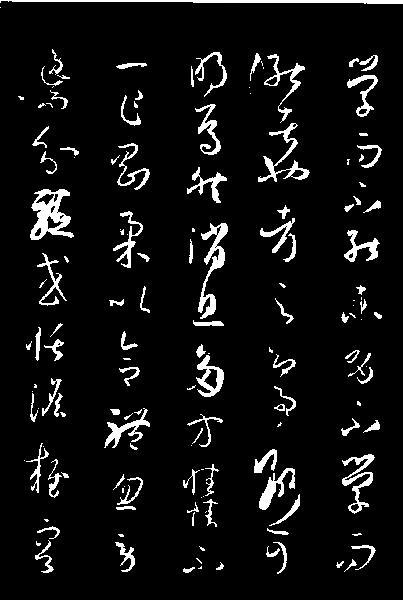 学而不能未有不学而
能者也考之即事断可
明焉然消息多方性情不
一乍剛柔以合體忽勞
逸而分驅或恬憺雍容